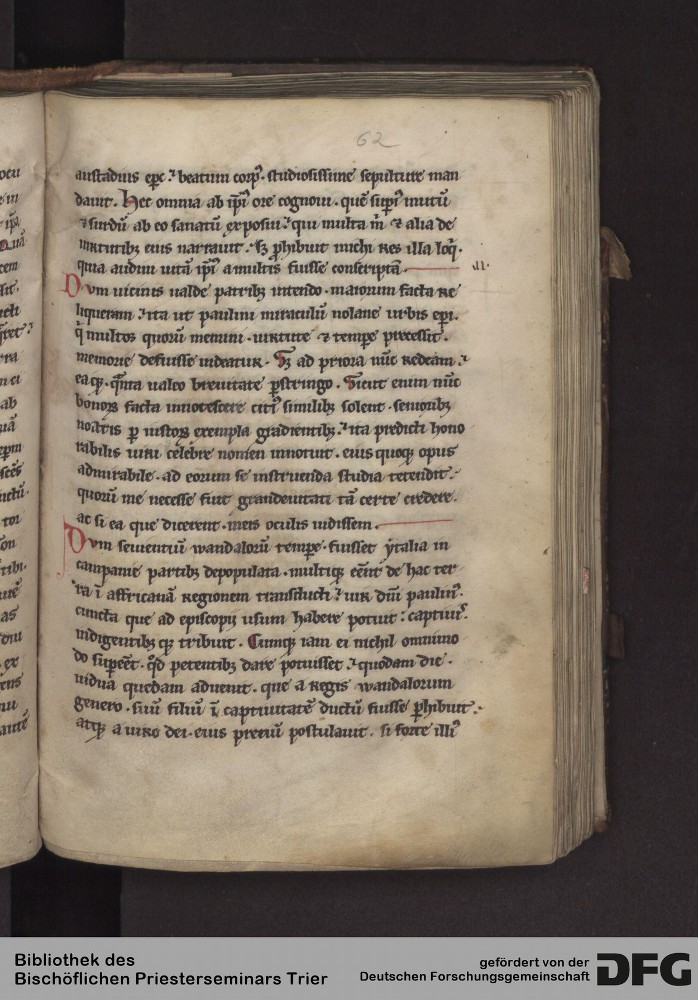 62
austadius epc ⁊ beatum corpꝰ· studiosissime sepulture man
dauit. Hec omnia ab ipiꝰ ore cognoui· quē supiꝰ mutū
⁊ surdū ab eo sanatū exposui ⁊ qui multa m̄ ⁊ alia de
uirtutibꝫ eius narrauit. Sꝫ ꝓhibuit michi res illa loqⁱ·
quia audiui uitā ipiꝰ a multis fuisse conscriptā.
Dvm uicinis ualde patribꝫ intendo· maiorum facta re
liqueram ⁊ ita ut paulini miraculū nolane urbis epi·
q̄ multos quorū memini· uirtute ⁊ tempe precessit·
memorie defuisse uideatur. Sꝫ ad priora nūc redeam ⁊
eaqꝫ· quāta ualeo breuitate ꝑstringo. Sicut enim nūc
bonoꝝ facta innotescere citiꝰ similibꝫ solent· senioribꝫ
nostris ꝑ iustoꝝ exempla gradientibꝫ ⁊ ita predicti hono
rabilis uiri celebre nomen innotuit· eius quoqꝫ opus
admirabile· ad eorum se instruenda studia tetendit·
quorū me necesse fuit grandeuitati tā certe credere·
ac si ea que dicerent· meis oculis uidissem.
Dvm seuientiū wandalorū tempe· fuisset ytalia in
campanie partibꝫ depopulata· multiqꝫ eēnt de hac ter
ra ī affricanā regionem transducti ⁊ uir dnī pauliniꝰ·
cuncta que ad episcopii usum habere potuit· captiuiꝰ·
indigentibꝫ qꝫ tribuit. Cumqꝫ iam ei nichil omnimo
do supeēt· qd petentibꝫ dare potuisset ⁊ quodam die·
uidua quedam aduenit· que a regis wandalorum
genero· suū filiū ī captiuitatē ductū fuisse ꝓhibuit·
atqꝫ a uiro dei· eius pretiū postulauit· si forte illiꝰ
Bibliothek des
Bischöflichen Priesterseminars Trier
gefördert von der
Deutschen Forschungsgemeinschaft
DFG